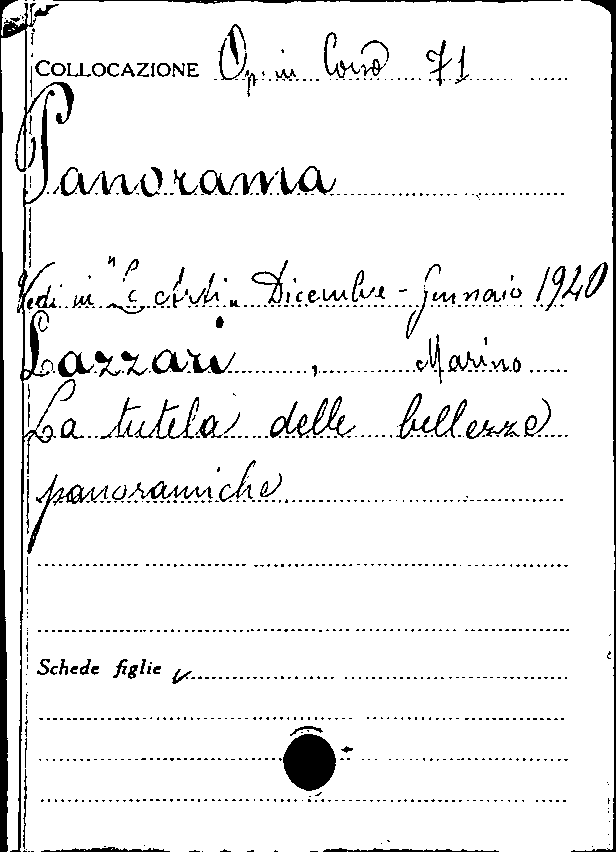 COLLOCAZIONE Op. in Corso 71
Panorama
Vedi in "Le Arti" Dicembre - Gennaio 1940
Lazzari, Marino
La tutela delle bellezze
panoramiche
Schede figlie